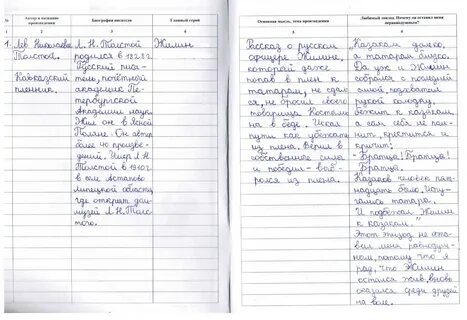 №
Автор и название произведения
Биография писателя
Главный герой
1
2
3
4
1.
Лев Николаевич
Толстой.
Кавказский
пленник.
Л. Н. Толстой
родился в
Русский писа-
тель, почётный
академик Пе-
тербургской
Академии наук
Жил он в Ясной
Поляне. Он автор
более 40 произве-
дений. Умер Л. Н.
Толстой в 1910 г.
в
Липецкой области,
где открыт дом-
музей Л. Н. Толс-
того.
Жилин
Основная мысль, тема произведения
Любимый эпизод. Почему он оставил меня неравнодушным?
5
6
Рассказ о русском
офицере Жилине,
который даже
попав в плен к
татарам, не сдал-
ся, не бросил своего
товарища Костыли-
на в беде. Искал
пути как убежать
из плена. Верил в
собственные силы
и победил – выб-
рался из плена.
„Казакам далеко,
а татарам близко.
Да уж и Жилин
собрался с последней
силой, подхватил
рукой колодку,
бежит к казакам,
а сам себя не пом-
нит, крестится и
кричит:
– Братцы! Братцы!
Братцы!
Казаков человек пят-
надцать было. Испу-
гались татары.
И подбежал Жилин
к казакам."
Этот эпизод не ос-
тавил меня равнодуш-
ном, потому что я
рад, что Жилин
остался жив, вновь
оказался среди друзей
на воле.